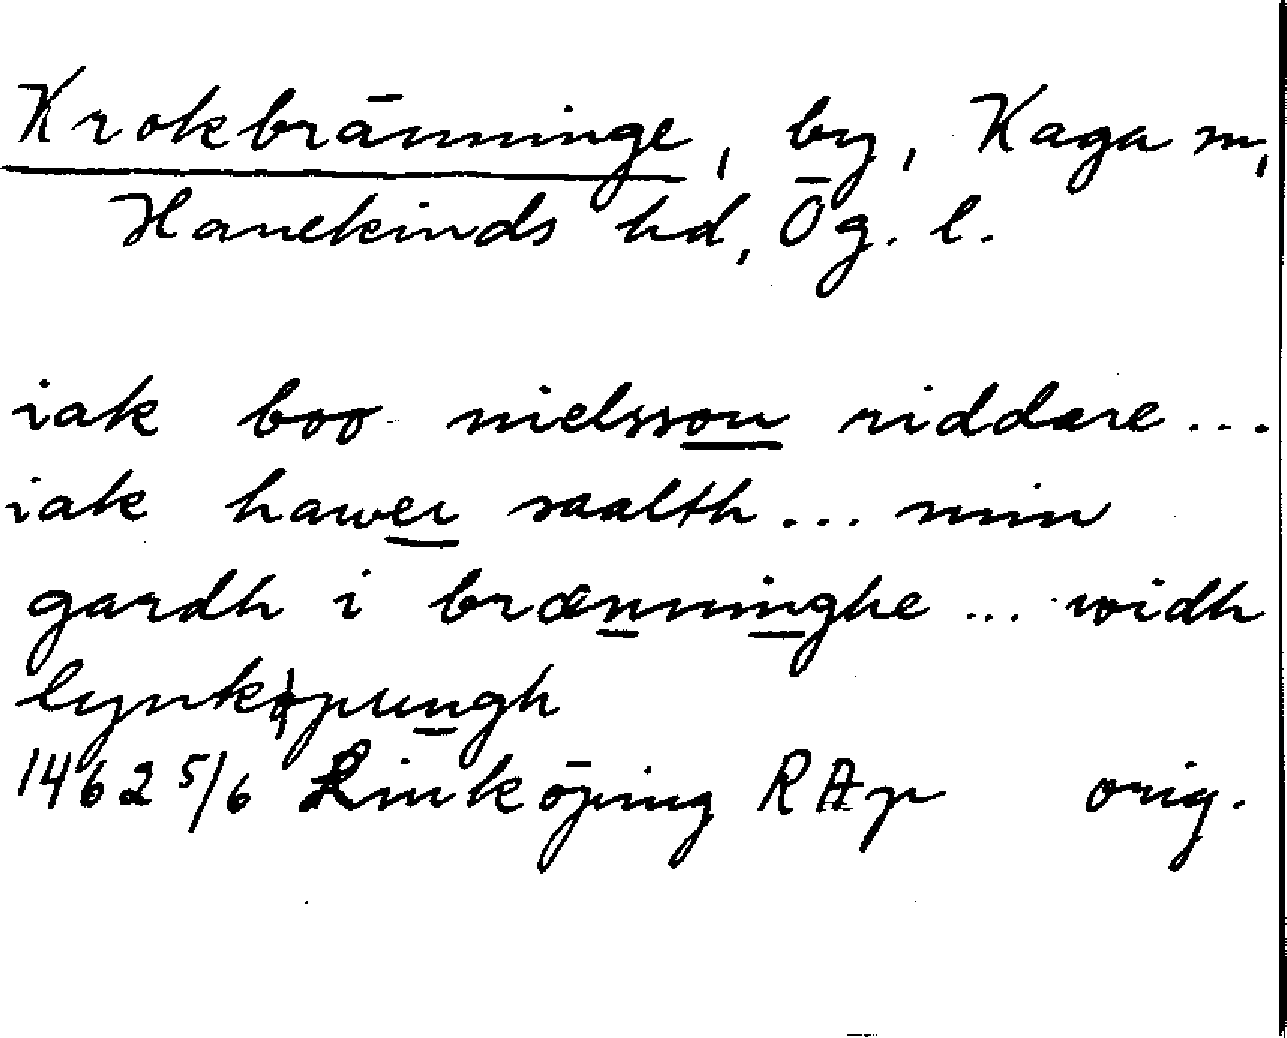 Krokbränninge, by, Kaga sn,
Hanekinds hd, Ög. l.
iak boo nielsson riddare ...
iak hawer saalth ... min
gardh i brænninghe ... widh
lynkøpungh
1462 5/6 Linköping RAp orig.